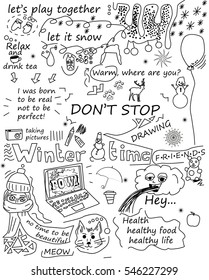 let's play together
let it snow
Relax
and
drink tea
Warm, where are you?
I was born
to be real
not to be
perfect!
DON'T STOP
DRAWING
taking
pictures
Winter time
F-R-I-E-N-D-S
no time to be
beautiful
MEOW
Hey...
Health
healthy food
healthy life
shutterstock.com · 546227299